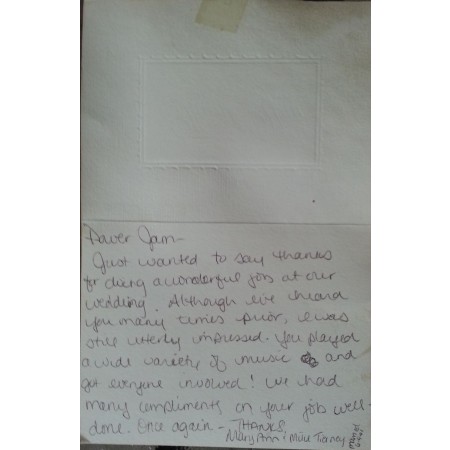 Power Jam-
Just wanted to say thanks
for doing a wonderful job at our
wedding. Although we've heard
you many times prior, I was
still utterly impressed. You played
a wide variety of music and
got everyone involved! We had
many compliments on your job well-
done. Once again - THANKS,
Mary Ann & Mike Tierney